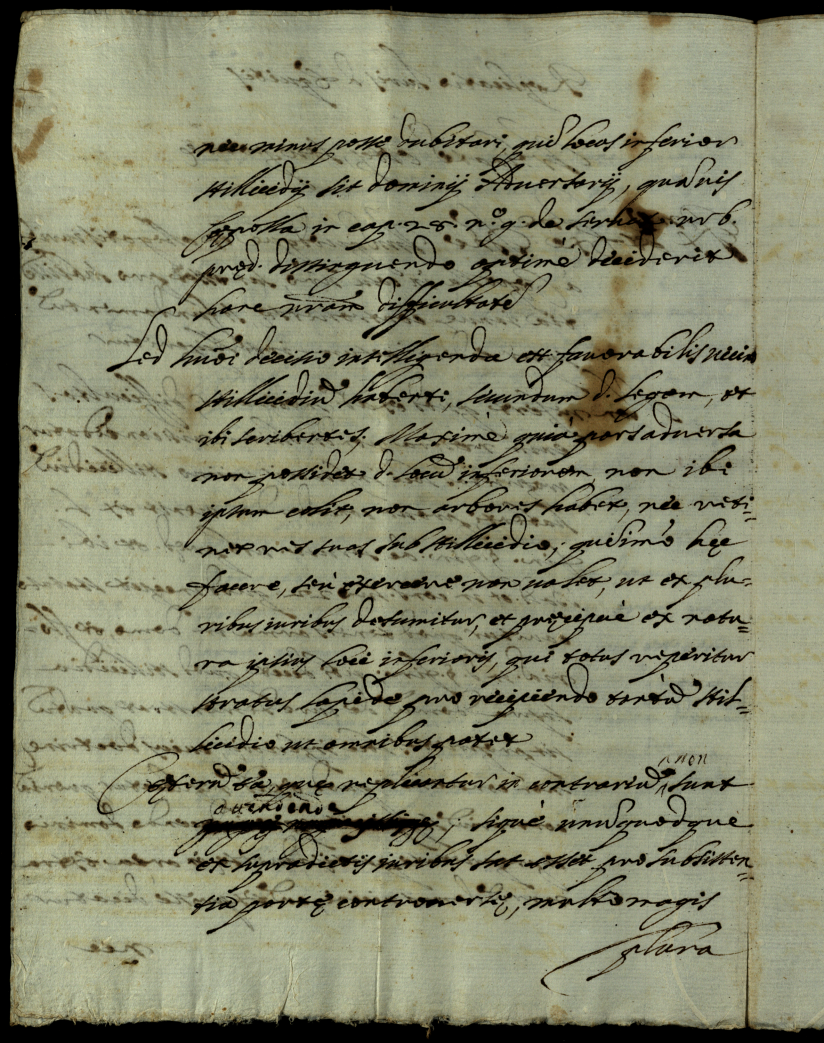 nec minus posse dubitari, quod locus inferior
stillicidij sit dominij Adversarij, quamvis
Cepolla in cap. 28. n.o 9. de servit. urb.
pręd. distinguendo optimè deciderit
hanc nram difficultatē
Sed hmōi decisio intelligenda est favorabilis vicino
stillicidiū habenti, secundum d. legem, et
ibi scribentes. Maximè quia pars adversa
non possidet d. locū inferiorem, non ibi
ipsum colit, non arbores habet, nec reti=
net res suas sub stillicidio; quinimò hęc
facere, seù exercere non valet, ut ex plu=
ribus iuribus desumitur, et pręcipuè ex natu=
ra ipsius loci inferioris, qui totus reperitur
stratus lapide pro recipiendo tantū stil=
licidio ut omnibus patet
Cęterū ea, quę replicantur in contrariū non sunt
attendenda; sique unūquodque
ex supradictis iuribus sat esset pro subsisten=
tia partę controversę, multo magis
plura